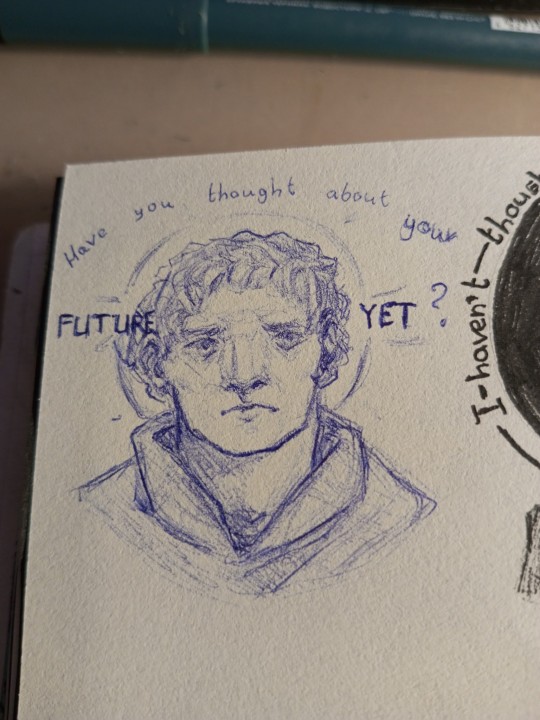 Have you thought about your
FUTURE YET?
I-haven't-though